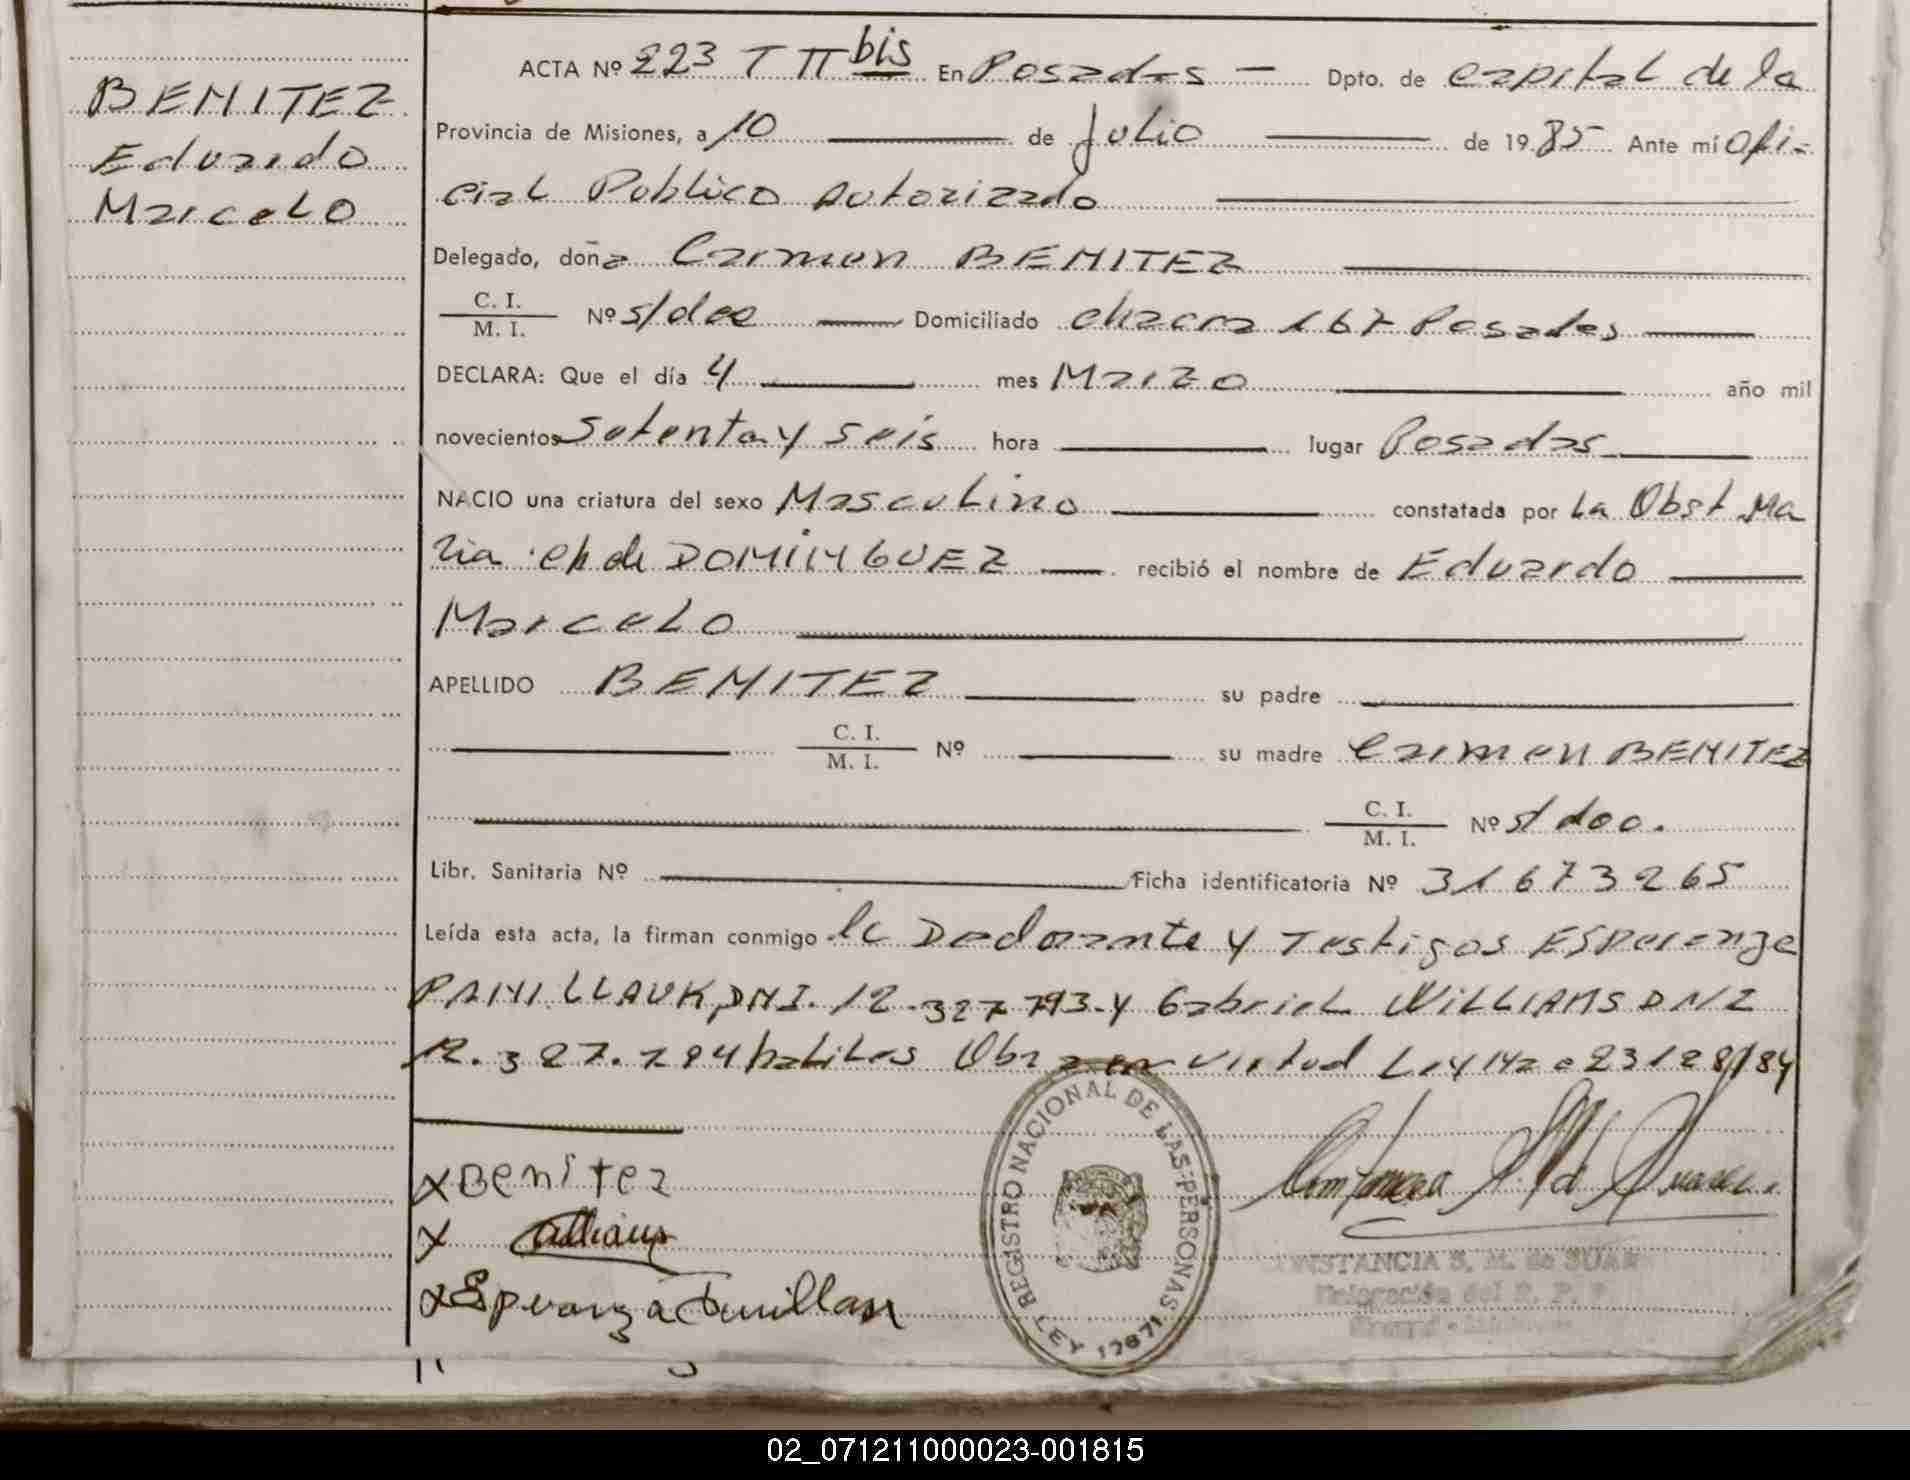 BENITEZ
Eduardo
Marcelo
ACTA Nº 223 T II bis En Posadas — Dpto. de capital de la
Provincia de Misiones, a 10 de Julio de 1985 Ante mí Ofi-
cial Publico Autorizado
Delegado, doña Carmen BENITEZ
C. I.
M. I. Nº s/doc Domiciliado chacra 167 Posadas
DECLARA: Que el día 4 mes Marzo año mil
novecientos Setenta y Seis hora lugar Posadas
NACIO una criatura del sexo Masculino constatada por la Obst Ma
ria Ch de DOMINGUEZ recibió el nombre de Eduardo
Marcelo
APELLIDO BENITEZ su padre
C. I.
M. I. Nº su madre Carmen BENITEZ
C. I.
M. I. Nº s/doc.
Libr. Sanitaria Nº Ficha identificatoria Nº 31673265
Leída esta acta, la firman conmigo la Declarante y Testigos Esperanza
DNI. 12.327.793-y Gabriel WILLIAMS DNI
12.327.784 habiles Obra en virtud Ley Nac 23128/84
x Benitez
x
x Esperanza
REGISTRO NACIONAL DE LAS PERSONAS
LEY 17671
CONSTANCIA S. M. de SUAR
Delegación del R. P. P.
02_071211000023-001815